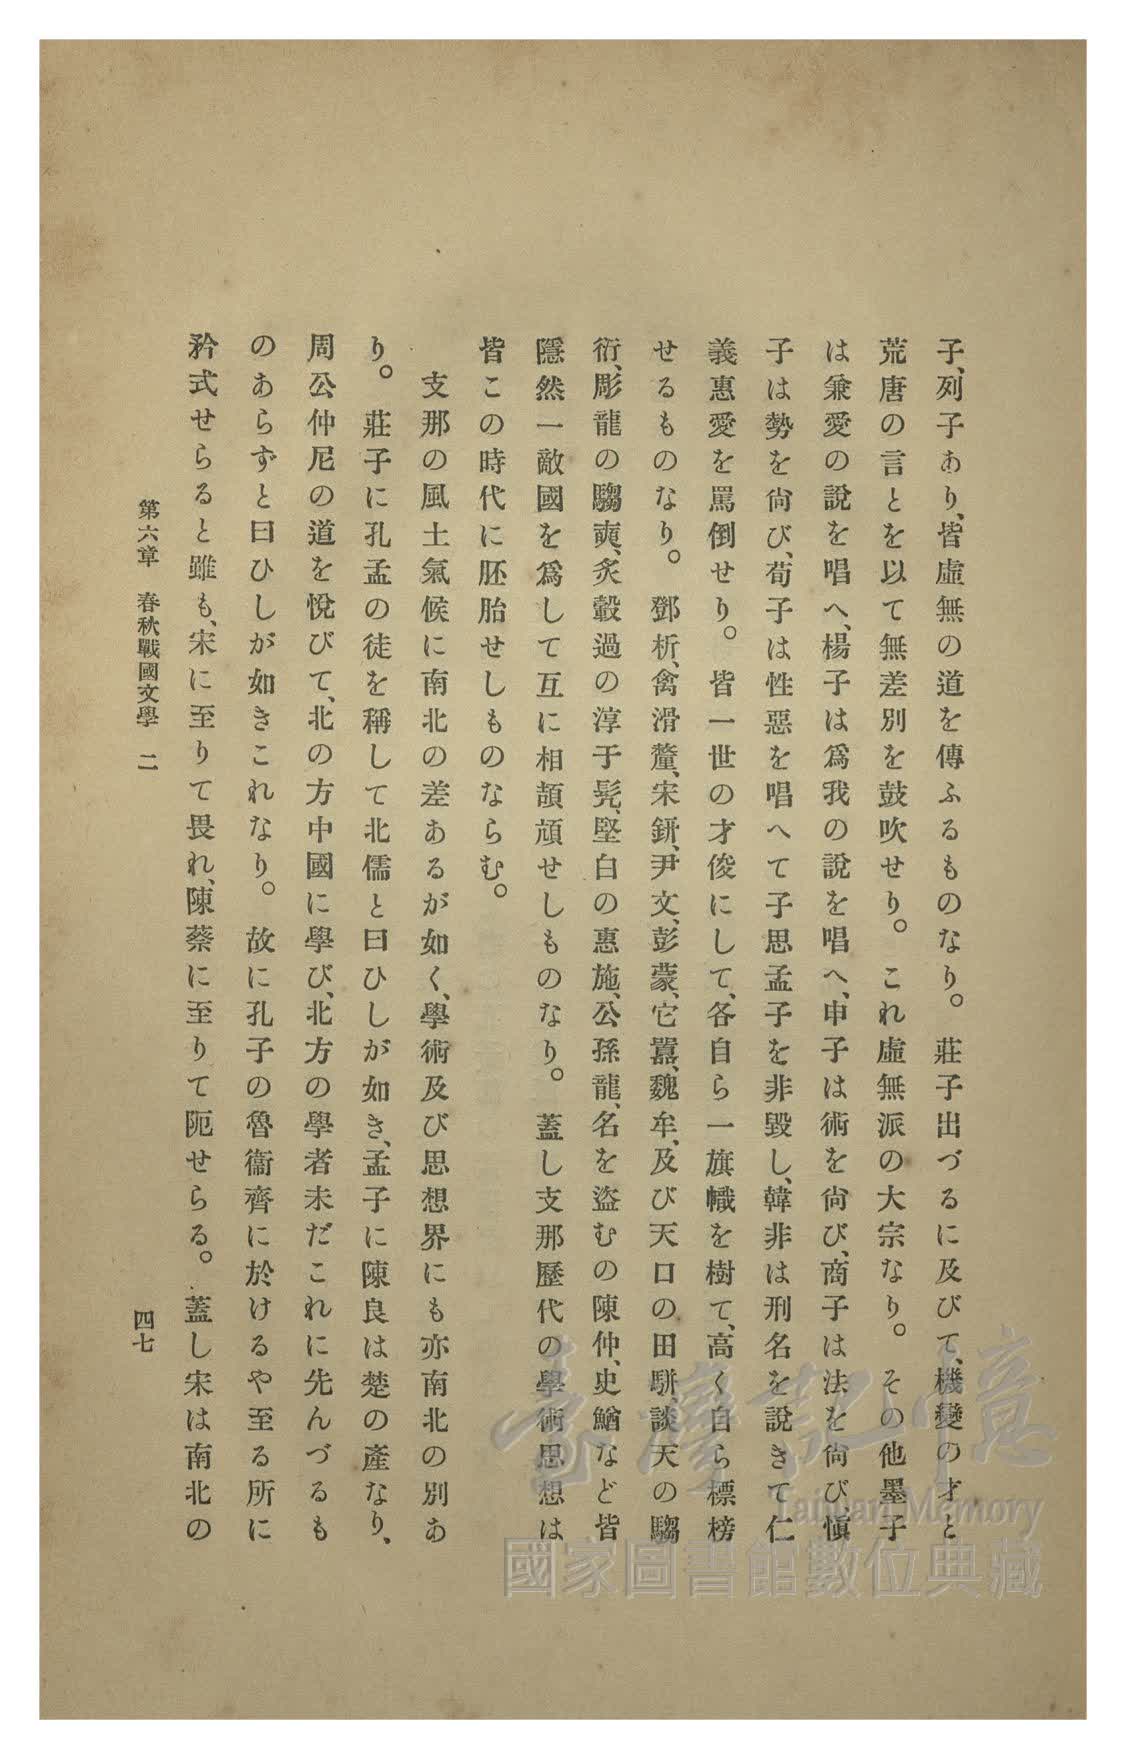 子、列子あり、皆虛無の道を傳ふるものなり。莊子出づるに及びて、機變の才と
荒唐の言とを以て無差別を鼓吹せり。これ虛無派の大宗なり。その他墨子
は兼愛の說を唱へ、楊子は爲我の說を唱へ、申子は術を尙び、商子は法を尙び、愼
子は勢を尙び、荀子は性惡を唱へて子思孟子を非毀し、韓非は刑名を說きて仁
義惠愛を罵倒せり。皆一世の才俊にして、各自ら一旗幟を樹て、高く自ら標榜
せるものなり。鄧析、禽滑釐、宋鈃、尹文、彭蒙、它囂、魏牟、及び天口の田駢、談天の騶
衍、彫龍の騶奭、炙轂過の淳于髡、堅白の惠施、公孫龍、名を盜むの陳仲、史鰌など皆
隱然一敵國を爲して互に相頡頏せしものなり。蓋し支那歷代の學術思想は
皆この時代に胚胎せしものならむ。
支那の風土氣候に南北の差あるが如く、學術及び思想界にも亦南北の別あ
り。莊子に孔孟の徒を稱して北儒と曰ひしが如き、孟子に陳良は楚の產なり、
周公仲尼の道を悅びて、北の方中國に學び、北方の學者未だこれに先んづるも
のあらずと曰ひしが如きこれなり。故に孔子の魯衞齊に於けるや至る所に
矜式せらると雖も、宋に至りて畏れ、陳蔡に至りて阨せらる。蓋し宋は南北の
第六章 春秋戰國文學 二
四七
臺灣記憶
Taiwan Memory
國家圖書館數位典藏